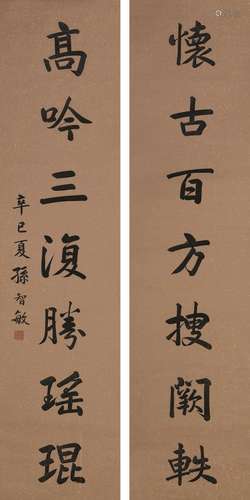 懷古百方搜闕軼
高吟三復勝瑤琨
辛巳夏孫智敏